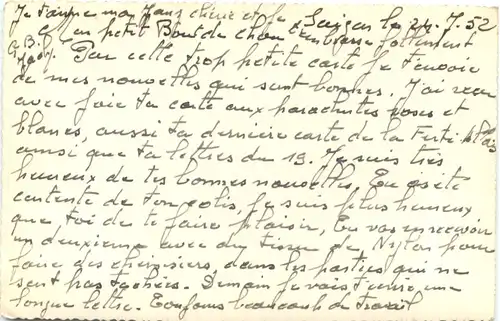 Je t'aime ma Jany chérie et je Saigon le 24.7.52
un petit Bout de chou t'embrasse follement
Par cette trop petite carte je t'envoie
de mes nouvelles qui sont bonnes. J'ai reçu
avec joie ta carte aux parachutes roses et
blancs, aussi ta dernière carte de la Ferté
ainsi que ta lettres du 19. Je suis très
heureux de tes bonnes nouvelles. Tu as été
contente de ton colis, je suis plus heureux
que toi de te faire plaisir, tu vas en recevoir
un deuxième avec du tissu de Nylon pour
faire des chemisiers, dans les parties qui ne
sont pas tachées. Demain je vais t'écrire une
longue lettre. Toujours beaucoup de travail